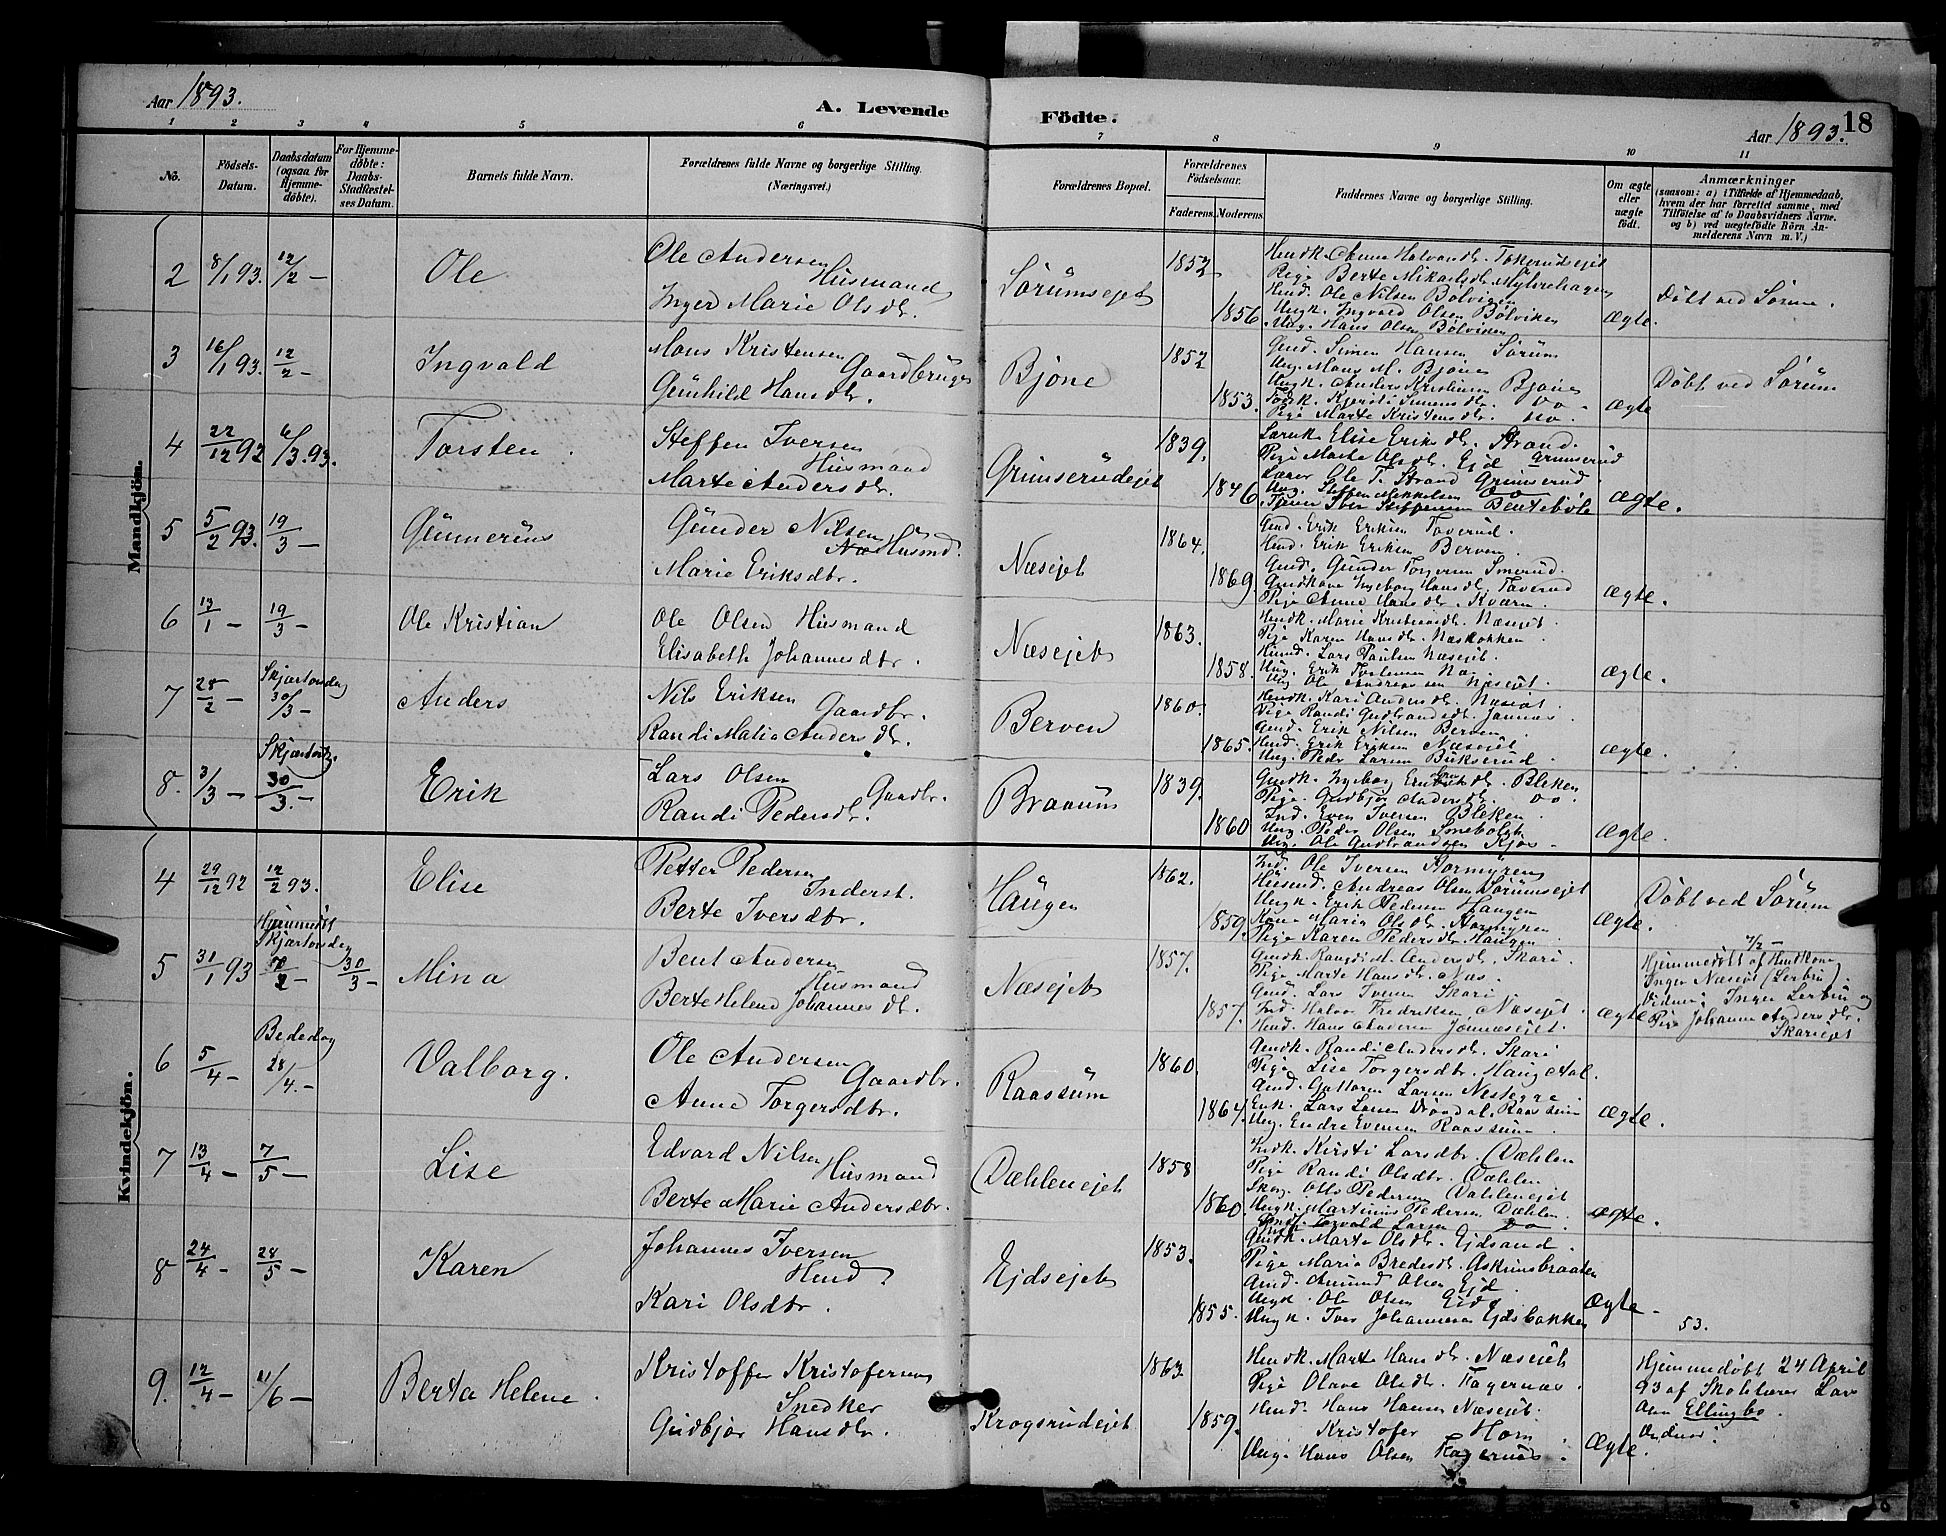 Aar 1893.
A. Levende Födte.
Aar 1893. 18
1 2 3 4 5 6 7 8 9 10 11
No.
Födsels-Datum.
Daabsdatum (ogsaa for Hjemmedöbte).
For Hjemmedöbte: Daabs-Stadfæstelses Datum.
Barnets fulde Navn.
Forældrenes fulde Navne og borgerlige Stilling. (Næringsvei.)
Forældrenes Bopæl.
Forældrenes Födselsaar.
Faderens. Moderens.
Faddernes Navne og borgerlige Stilling.
Om ægte eller uægte födt.
Anmærkninger
(saasom: a) i Tilfælde af Hjemmedaab, hvem der har forrettet samme, med Tilföielse af to Daabsvidners Navne, og b) ved uægtefödte Börn Anmelderens Navn m. V.)
Mandkjön.
2 8/1 93. 12/2 – Ole
Ole Andersen Husmand
Inger Marie Olsdtr.
Sörumsejet 1852 1856
Hmdk. Anne Halvorsdtr. Tokerudsejet
Pige Berte Mikaelsdtr. Myhrehagen
Husmd. Ole Nilsen Bölviken
Ungk. Ingvald Olsen Bölviken
Ung. Hans Olsen Bölviken
Ægte.
Döbt ved Sörum.
3 16/1 93. 12/2 – Ingvald
Mons Kristensen Gaardbruger
Gunhild Hansdtr.
Bjöne 1852 1853.
Gmd. Simen Hansen Sörum
Ung. Mons M. Bjöne
Ungk. Anders Kristensen Bjöne
Kjersti Simensdtr. do
Pige Marte Kristensdtr. do.
Ægte
Döbt ved Sörum
4 22/12 92 6/3. 93. Torsten.
Steffen Iversen Husmand
Marte Andersdtr.
Grimserudejet 1839. 1846.
Lærerk. Elise Eriksdtr. Strand.
Pige Marte Olsdtr. Ejd Grimserud
Lærer Ole T. Strand Grimserud
Ung. Steffen Mikkelsen do
Iver Steffensen Benteböle
Ægte.
5 5/2 93. 19/3 – Gunnerius
Gunder Nilsen Husmd.
Marie Eriksdtr.
Næsejet 1864. 1869.
Gmd. Erik Eriksen Taverud.
Hmd. Erik Eriksen Berven.
Gmd. Gunder Torgersen Smerud.
Gmdkone Ingeborg Hansdtr. Taverud
Pige Anne Hansdtr. Kværn.
Ægte.
6 13/1 – 19/3 – Ole Kristian
Ole Olsen Husmand
Elisabeth Johannesdtr.
Næsejet 1863. 1858.
Hmdk. Marie Kristiansdtr. Næsejet.
Pige Karen Hansdtr. Næsbakken
Husmd. Lars Paulsen Næsejet.
Ung. Erik Næs
Ung Ole Andreassen Næsejet.
Ægte.
7 28/2 – Skjærtorsdag 30/3 – Anders
Nils Eriksen Gaardbr.
Randi Matia Andersdtr.
Berven 1860. 1865.
Hmdk. Kari Andersdtr. Næsejet
Pige Randi Gudbrandsdtr. Jannæs.
Gmd. Erik Nilsen Berven.
Hmd. Erik Eriksen Næsejet
Ung. Peder Larsen Bukserud.
Ægte.
8. 3/3 – Skjærtorsdg. 30/3. – Erik
Lars Olsen Gaardbr.
Randi Pedersdtr.
Braaum 1839. 1860
Gmdk. Ingeborg Eriksdtr. Bleken
Pige. Gudbjör Andersdtr. do.
Even Iversen Bleken
Ung. Peder Olsen
Ung. Ole Gudbrandsen Kjös
Ægte.
Kvindekjön.
4 29/12 92 12/2 93. Elise
Petter Pedersen Inderst.
Berte Iversdtr.
Haugen 1862. 1859.
Ind. Ole Iversen Hormyren
Husmd. Andreas Olsen Sörumsejet
Ungk. Erik Pedersen Haugen
Kone Maria Olsdtr. Hormyren
Pige Karen Pedersdtr. Haugen.
Ægte.
Döbt ved Sörum
5 31/1 93 Hjemmedöbt Skjærtorsdag 30/3 – Mina
Bent Andersen Husmand
Berte Helene Johannesdtr.
Næsejet 1857. 1857.
Gmdk. Randi M. Andersdtr. Skari.
Pige Marte Hansdtr. Næs.
Gmd. Lars Iversen Skari
Ind. Halvor Fredriksen Næsejet.
Hmd. Hans Andersen Jannæsejet.
Ægte
7/2 –
Hjemmedöbt af Hmdkone
Inger Næsejet (Lerbru).
Vidner: Inger Lerbru og
Pige Johanne Andersdtr.
Skariejet
6 5/4 – Bededag 28/4. – Valborg.
Ole Andersen Gaardbr.
Anne Torgersdtr.
Raassum 1860. 1864.
Gmdk. Randi Andersdtr. Skari
Pige Lise Torgersdtr. Haug Aal.
Gmd. Guttorm Larsen Nestegge.
Enk. Lars Larsen Raassum
Ung. Endre Evensen Raassum
Ægte.
7 13/4 – 7/5 – Lise
Edvard Nilsen Husmand
Berte Marie Andersdtr.
Dæhlenejet 1858 1860.
Indk. Kirsti Larsdtr. Dæhlen
Pige Randi Olsdtr. Dæhlen
Otto Pedersen Dæhlenejet
Ungk. Martinius Pedersen Dæhlen.
Torvald Larsen do
Ægte.
8 24/4 – 28/5 – Karen
Johannes Iversen Hmd
Kari Olsdtr.
Ejdsejet 1853. 1855.
Gmdk. Marte Olsdtr. Ejdsand.
Pige Maria Bredesdtr. Askimsbraaten
Gmd. Amund Olsen Ejd.
Ungk. Ole Olsen Eid
Ungk. Iver Johannesen Ejdsbakken
Ægte.
53.
9. 12/4 – 11/6 – Berta Helene.
Kristoffer Kristofersen Snedker
Gudbjör Hansdtr.
Krogsrudejet 1863. 1859.
Hmdk. Marte Hansdtr. Næsejet
Pige Olave Olsdtr. Fagernæs.
Hmd. Hans Hansen Næsejet.
Kristofer Hom.
Ung. Hans Olsen Fagernæs.
Ægte.
Hjemmedöbt 24 April
93 af Skolelærer Lars
Ellingbo.